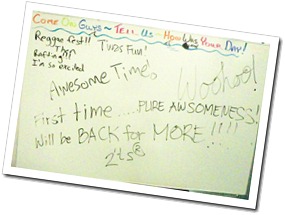 Come On Guys ~ Tell Us ~ How Was Your Day!
Reggae fest!!
Rafting!!
I'm so excited
Twas Fun!
Awesome Time.
Woohoo!
First time .... PURE AWSOMENESS!
Will be BACK for MORE !!!!
2'ts